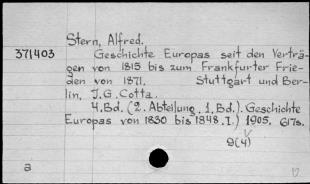 Stern, Alfred.
371403 Geschichte Europas seit den Verträ-
gen von 1815 bis zum Frankfurter Frie-
den von 1871. Stuttgart und Ber-
lin, J.G. Cotta.
4.Bd. (2. Abteilung, 1.Bd.). Geschichte
Europas von 1830 bis 1848. I.) 1905. 617s.
9(4)
a